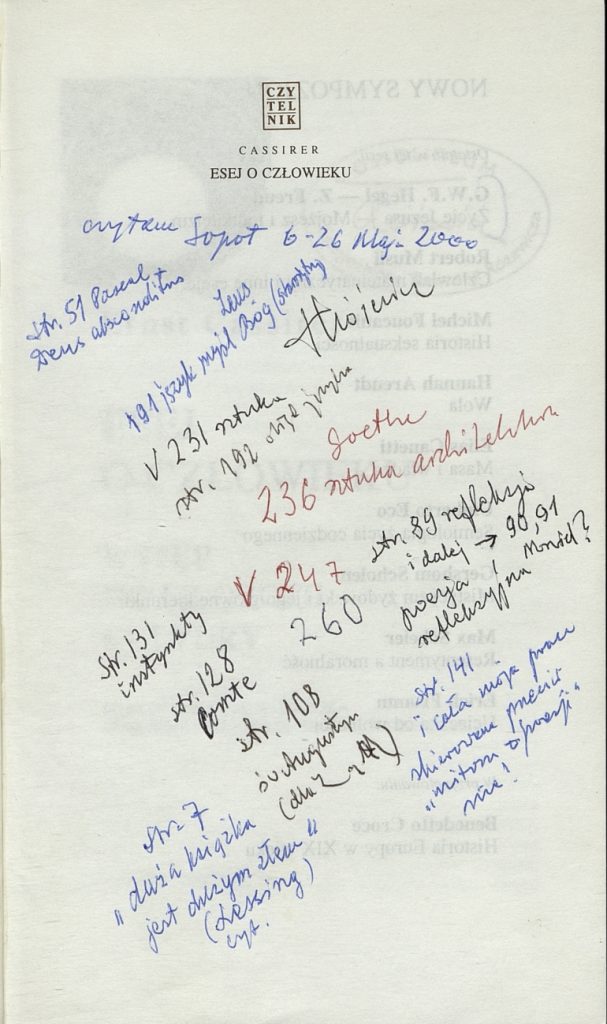 CZY
TEL
NIK
CASSIRER
ESEJ O CZŁOWIEKU
czytam Sopot 6-26 Maja 2000
str. 51 Pascal
Deus absconditus
Zeus
191 język myśl Bóg
V 231 sztuka
str. 192 obiąd języka
Goethe
236 sztuka architektura
str. 89 refleksja
i dalej → 90,91
poezja
refleksyjna Miłosz?
V 247
260
str. 131
instynkty
str. 128
Comte
str. 108
św Augustyn
str. 141
i cała moja praca
skierowana przeciw
"mitom
nie!
str. 7
"duża książka
jest dużym złem"
(Lessing)
cyt.
NOWY SYMPOZ
G.W.F. Hegel — Z. Freud
Życie Jezusa — Mojżesz i
Robert Musil
Michel Foucault
Historia seksualności
Hannah Arendt
Wola
Elias Canetti
Masa i
Eco
życia codziennego
Gershom Scholem
Max Scheler
Resentyment a moralność
Erich Fromm
Ucieczka od
Benedetto Croce
Historia Europy w XIX